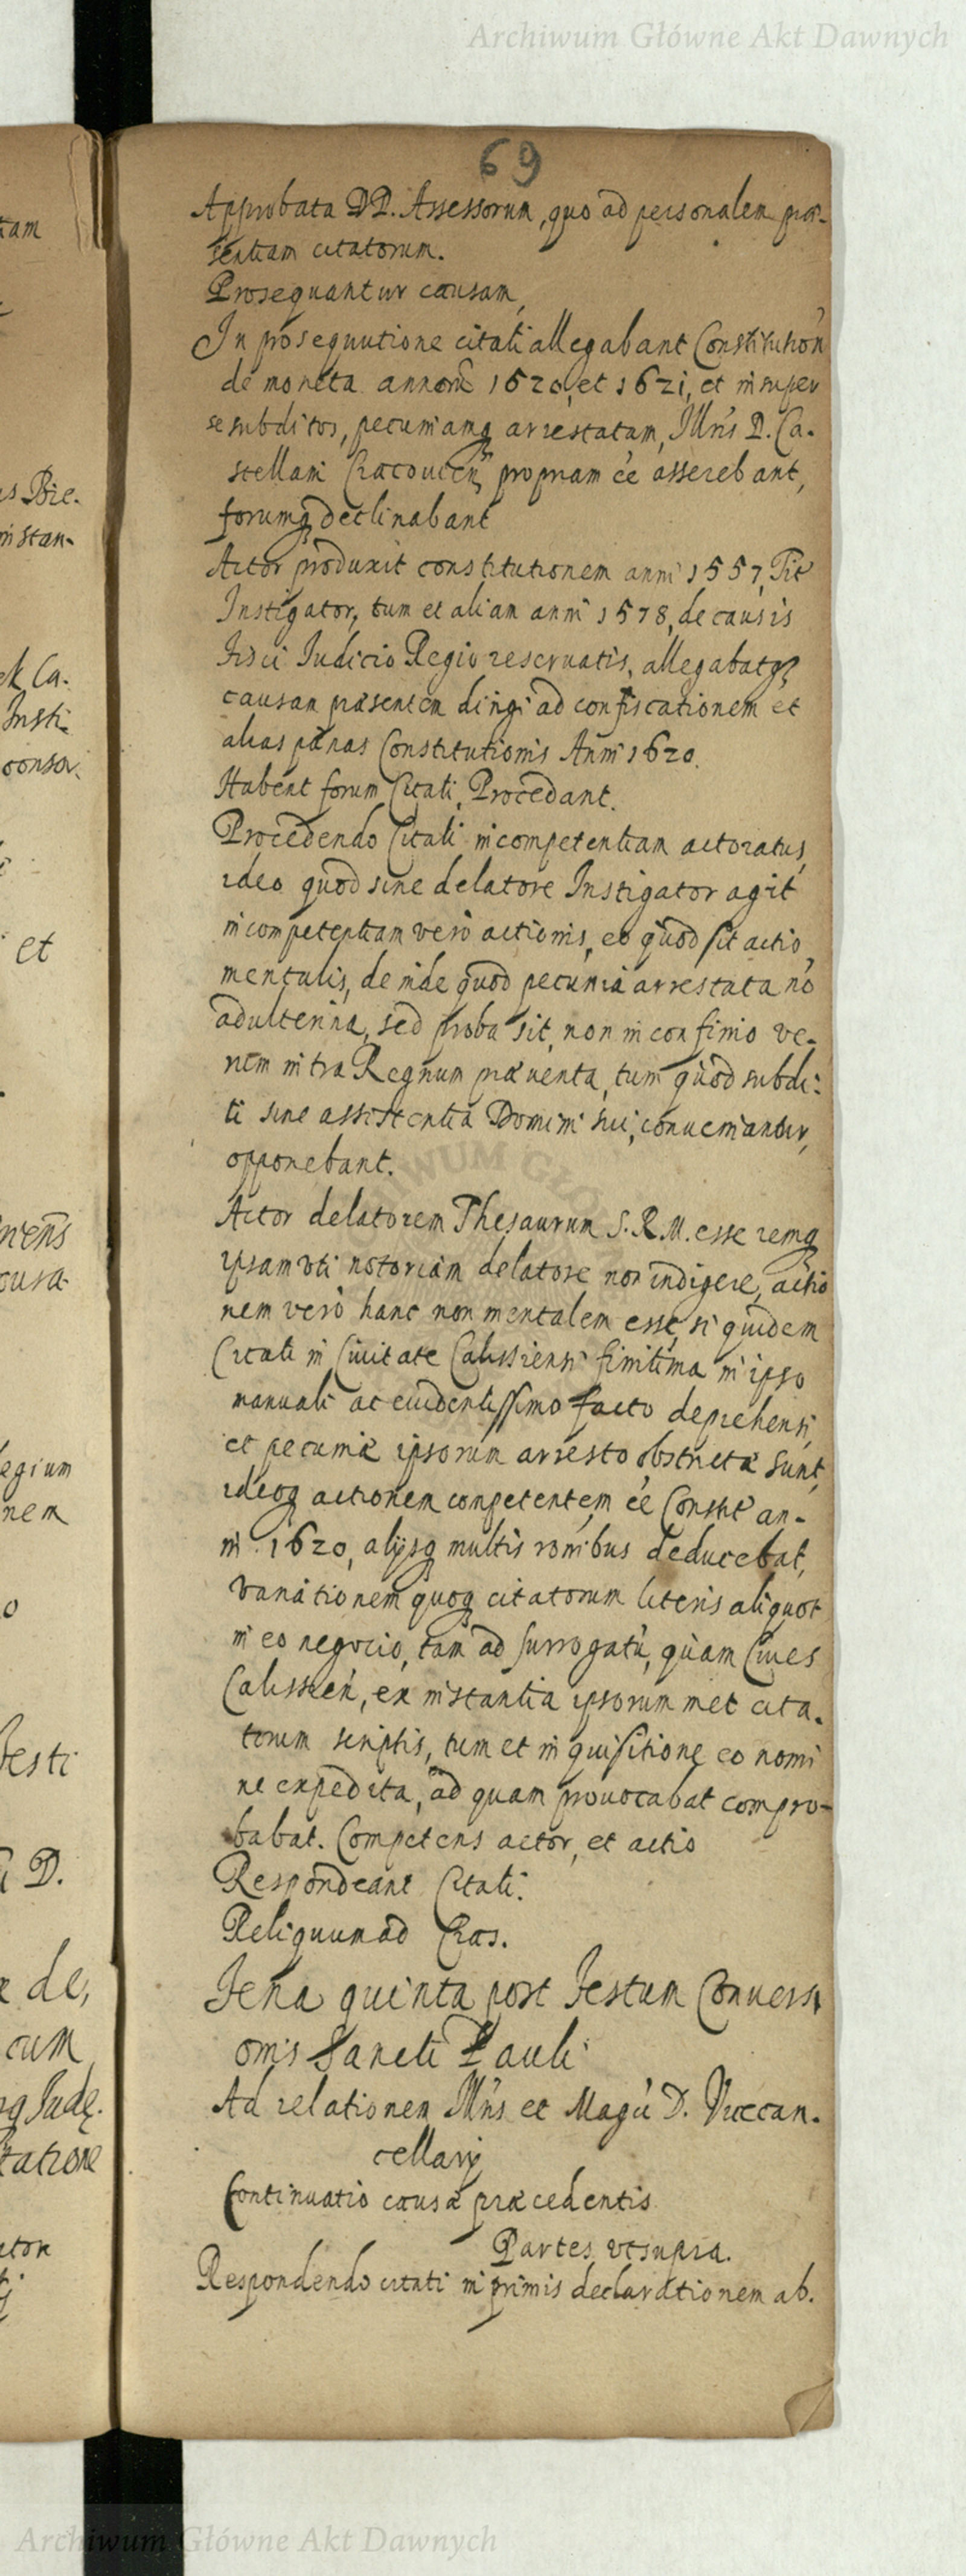 Archiwum Główne Akt Dawnych
69
Approbata DD. Assessorum, quo ad personalem præ-
sentiam citatorum.
Prosequantur causam,
In prosequutione citati allegabant Constitution
de moneta annorũ 1620, et 1621, et insuper
se subditos, pecuniamq arrestatam, Illris D. Ca-
stellani Cracovien, propriam eẽ asserebant,
forumq declinabant
Actor produxit constitutionem anni 1557, Tit
Instigator, tum et aliam anni 1578, de causis
Fisci Iudicio Regio reseruatis, allegabatq
causam præsentem dirigi ad confiscationem et
alias pænas Constitutionis Anni 1620.
Habent forum Citati, Procedant.
Procedendo Citati incompetentiam actoratus,
ideo quod sine delatore Instigator agit
incompetentiam vero actionis, eo quod sit actio
mentalis, deinde quod pecunia arrestata nõ
adulterina, sed proba sit, non in confinio ve-
rum intra Regnum præuenta, tum quod subdi-
ti sine assistentia Domini sui, conueniantur,
opponebant.
Actor delatorem Thesaurum S. R. M. esse remq
ipsam uti notoriam delatore non indigere, actio
nem vero hanc non mentalem esse, si quidem
Citati in Ciuitate Calissiensi finitima in ipso
manuali ac euidentissimo facto deprehensi
et pecuniæ ipsorum arresto obstrictæ sunt,
ideoq actionem competentem eẽ Constit an-
ni 1620, alijsq multis ronibus deducebat,
variationem quoq citatorum literis aliquot
in eo negocio, tam ad surrogatũ, quam Ciues
Calissien, ex instantia ipsorummet cita-
torum scriptis, tum et inquisitione eo nomi
ne expedita, ad quam prouocabat compro-
babat. Competens actor, et actio
Respondeant Citati.
Reliquum ad Cras.
Feria quinta post Festum Conuersi
onis Sancti Pauli
Ad relationem Illris et Magci D. Vicecan-
cellarij
Continuatio causæ præcedentis
Partes ut supra.
Respondendo citati inprimis declarationem ab.
Archiwum Główne Akt Dawnych